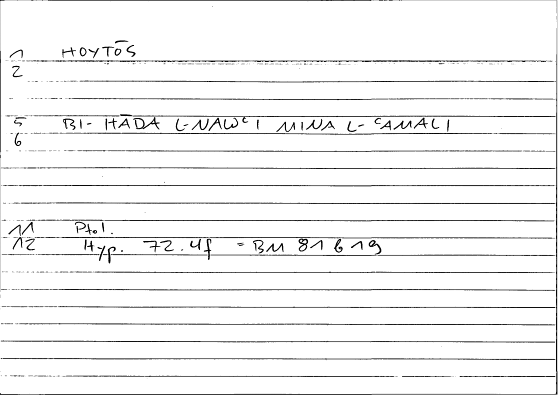 1 HOYTŌS
2
5 BI- HĀDA L-NAWᶜI MINA L-ᶜAMALI
6
11 Ptol.
12 Hyp. 72.4f = BM 81 b 19